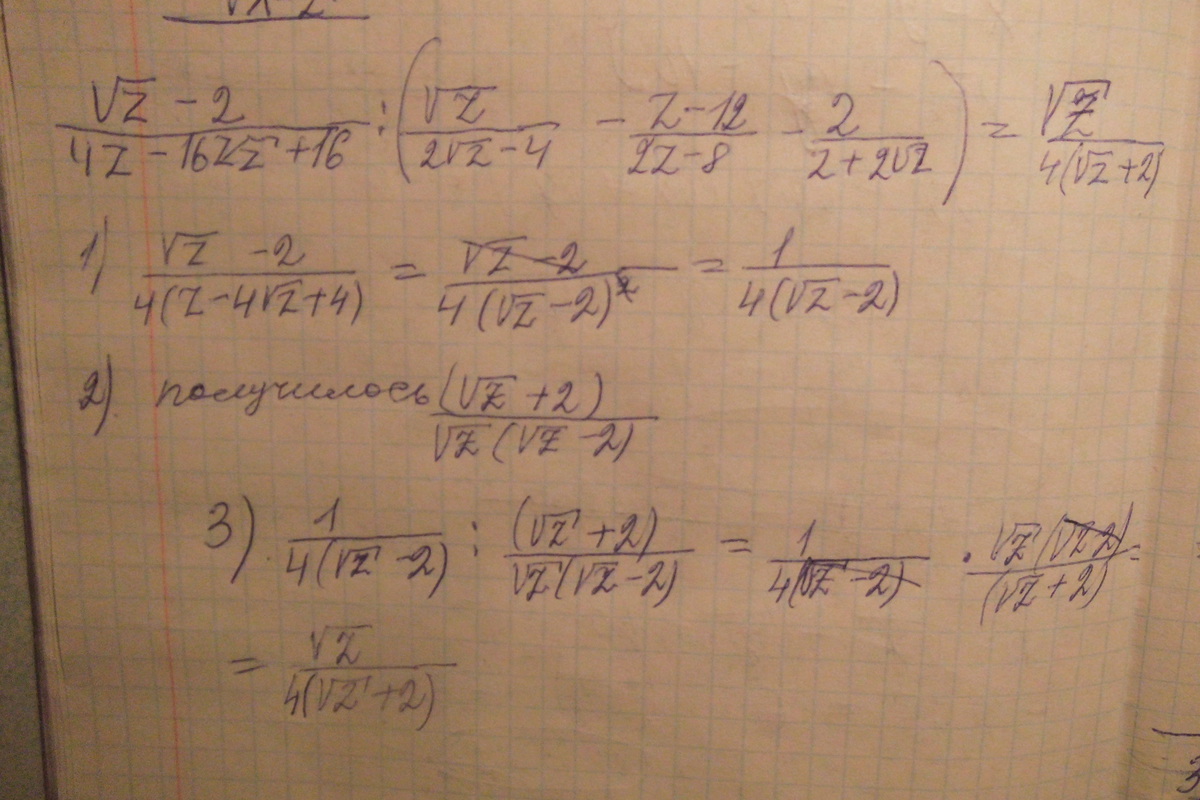 (√z - 2)/(4z - 16z√z + 16) : (√z/(2√z - 4) - (z - 12)/(2z - 8) - 2/(z + 2√z)) = √z/(4(√z + 2))
1) (√z - 2)/(4(z - 4√z + 4)) = (√z - 2)/(4(√z - 2)²) = 1/(4(√z - 2))
2). получилось (√z + 2)/(√z(√z - 2))
3). 1/(4(√z - 2)) : (√z + 2)/(√z(√z - 2)) = 1/(4(√z - 2)) · √z(√z 2)/(√z + 2) =
= √z/(4(√z + 2))
3